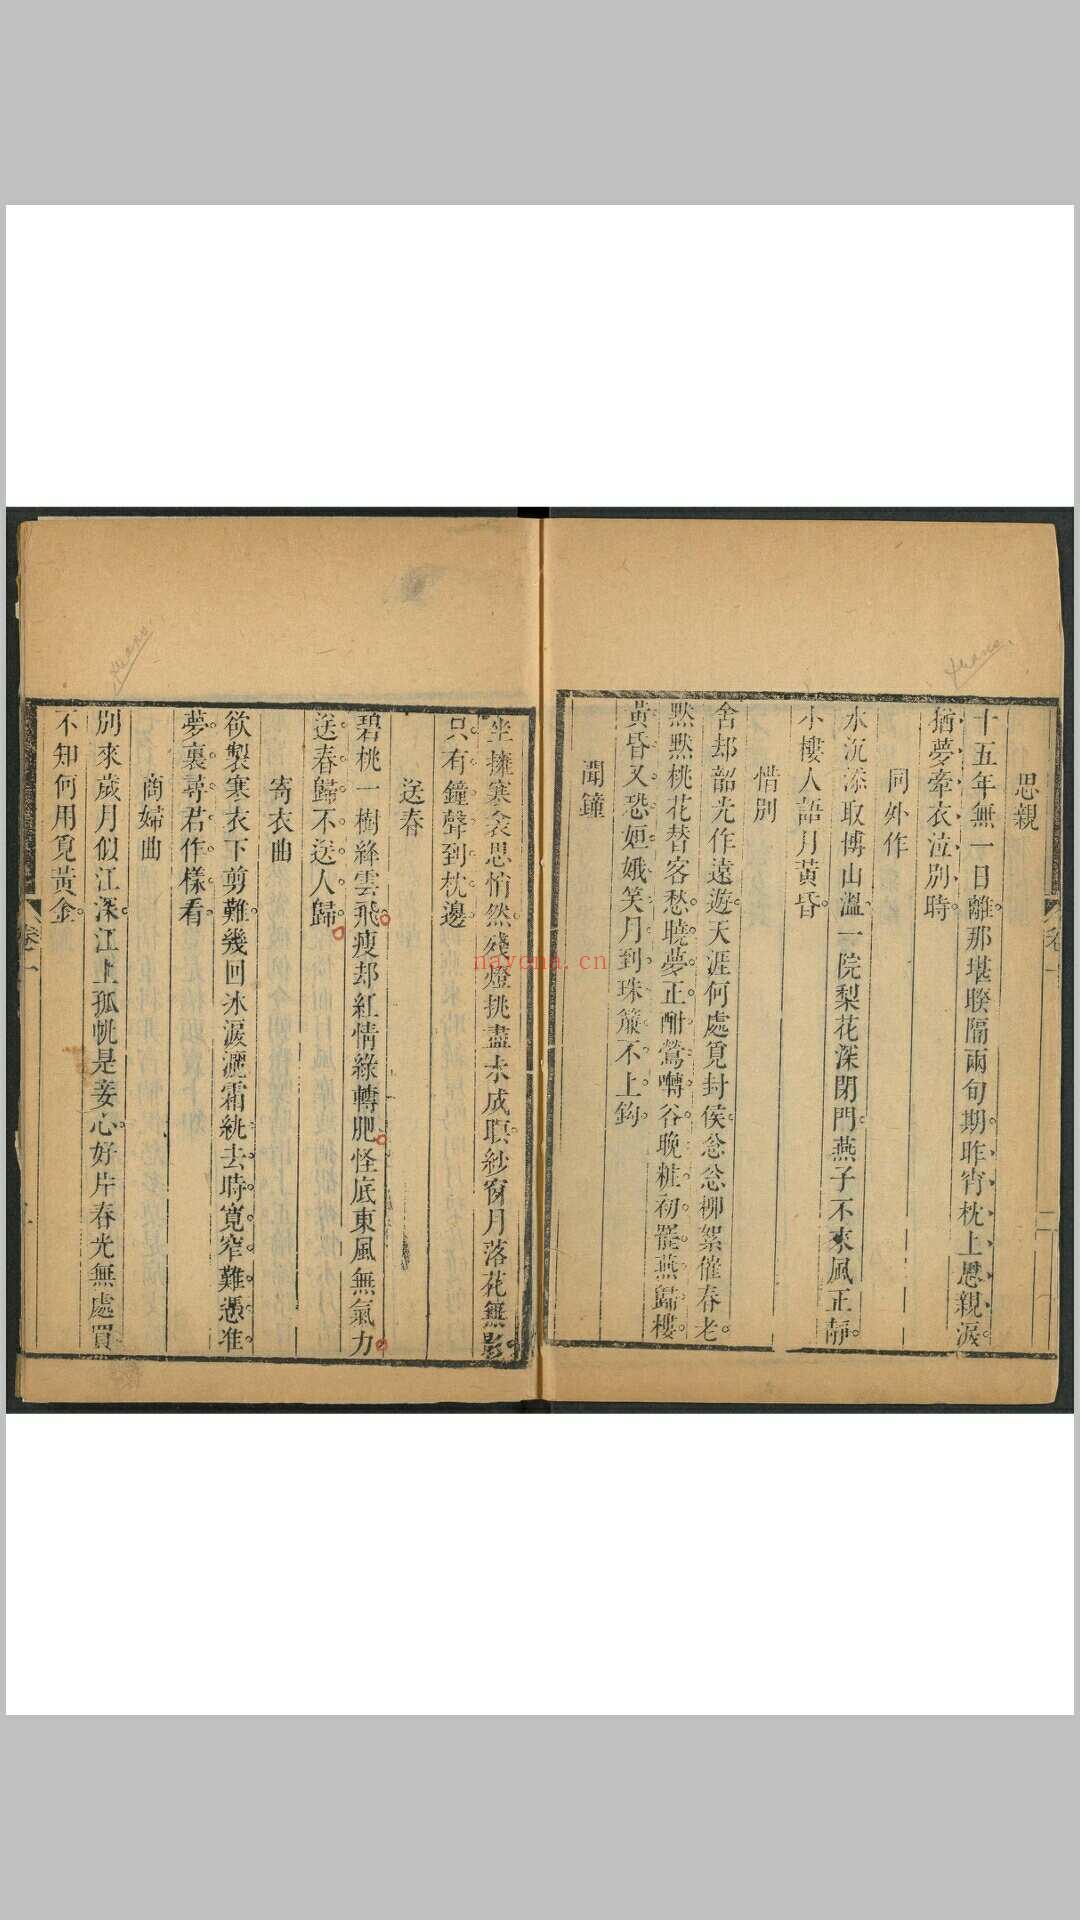 思親
十五年無一日離那堪睽隔兩旬期昨宵枕上思親淚
猶夢牽衣泣別時
同外作
水沉添取博山溫一院梨花深閉門燕子不來風正靜
小樓人語月黃昏
惜別
舍却韶光作遠遊天涯何處覓封侯忩忩柳絮催春老
黙黙桃花替客愁曉夢正酣鶯囀谷晚粧初罷燕歸樓
黃昏又恐姮娥笑月到珠簾不上鈎
聞鐘
卷一
二
坐擁寒衾思悄然殘燈挑盡未成瞑紗窗月落花無影
只有鐘聲到枕邊
送春
碧桃一樹絳雲飛瘦却紅情綠轉肥怪底東風無氣力
送春歸不送人歸
寄衣曲
欲製寒衣下剪難幾回冰淚灑霜紈去時寬窄難憑准
夢裏尋君作樣看
商婦曲
別來歲月似江深江上孤帆是妾心好片春光無處買
不知何用覓黃金
卷一
nayona.cn